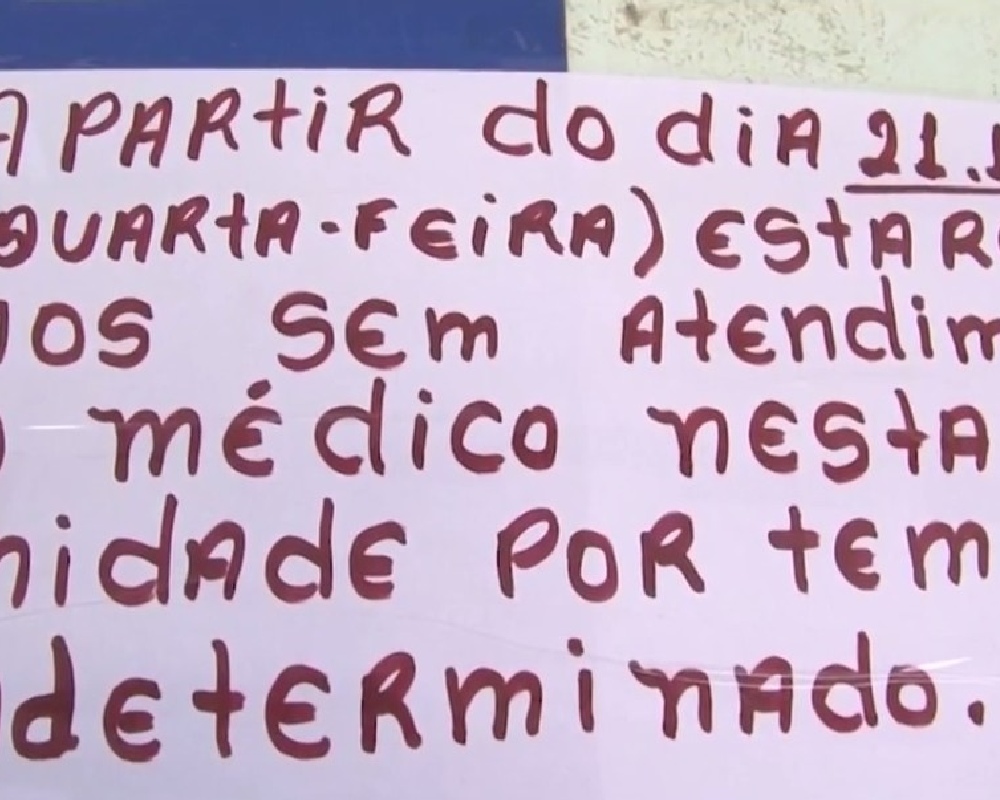 A PARTIR do diA 21.
QUARTA-FEIRA) ESTAR
MOS SEM AtEndim
médico nESTA
nidAdE POR tEm
dEtERminAdo.